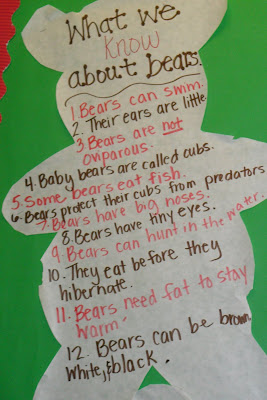 What we
know
about bears.
1. Bears can swim.
2. Their ears are little.
3. Bears are not
oviparous.
4. Baby bears are called cubs.
5. Some bears eat fish.
6. Bears protect their cubs from predators
7. Bears have big noses.
8. Bears have tiny eyes.
9. Bears can hunt in the water.
10. They eat before they
hibernate.
11. Bears need fat to stay
warm.
12. Bears can be brown,
white, & black.